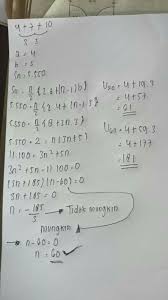 4 + 7 + 10
3 3
a = 4
b = 3
Sn = 5.550
Sn = n/2 {2a + (n-1)b}
5.550 = n/2 {2.4 + (n-1)3}
5.550 = n/2 {8 + 3n - 3}
5.550 × 2 = n (3n + 5)
11.100 = 3n² + 5n
3n² + 5n - 11.100 = 0
(3n + 185) (n - 60) = 0
3n + 185 = 0
n = -185/3 → Tidak mungkin
mungkin
n - 60 = 0
n = 60 ✓
U20 = 4 + 19.3
= 4 + 57
= 61
U60 = 4 + 59.3
= 4 + 177
= 181